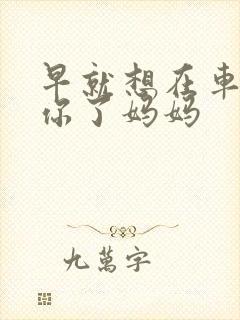 早就想在車
你了妈妈
九萬字